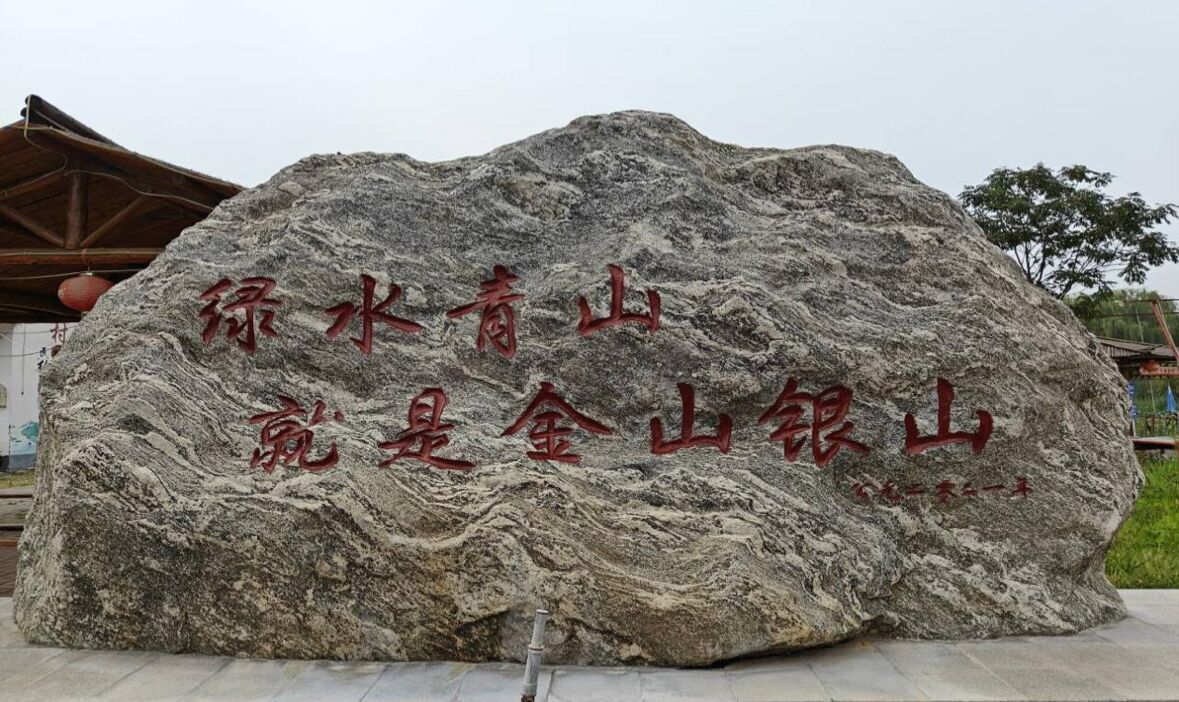 绿水青山
就是金山银山
公元二零二一年
村